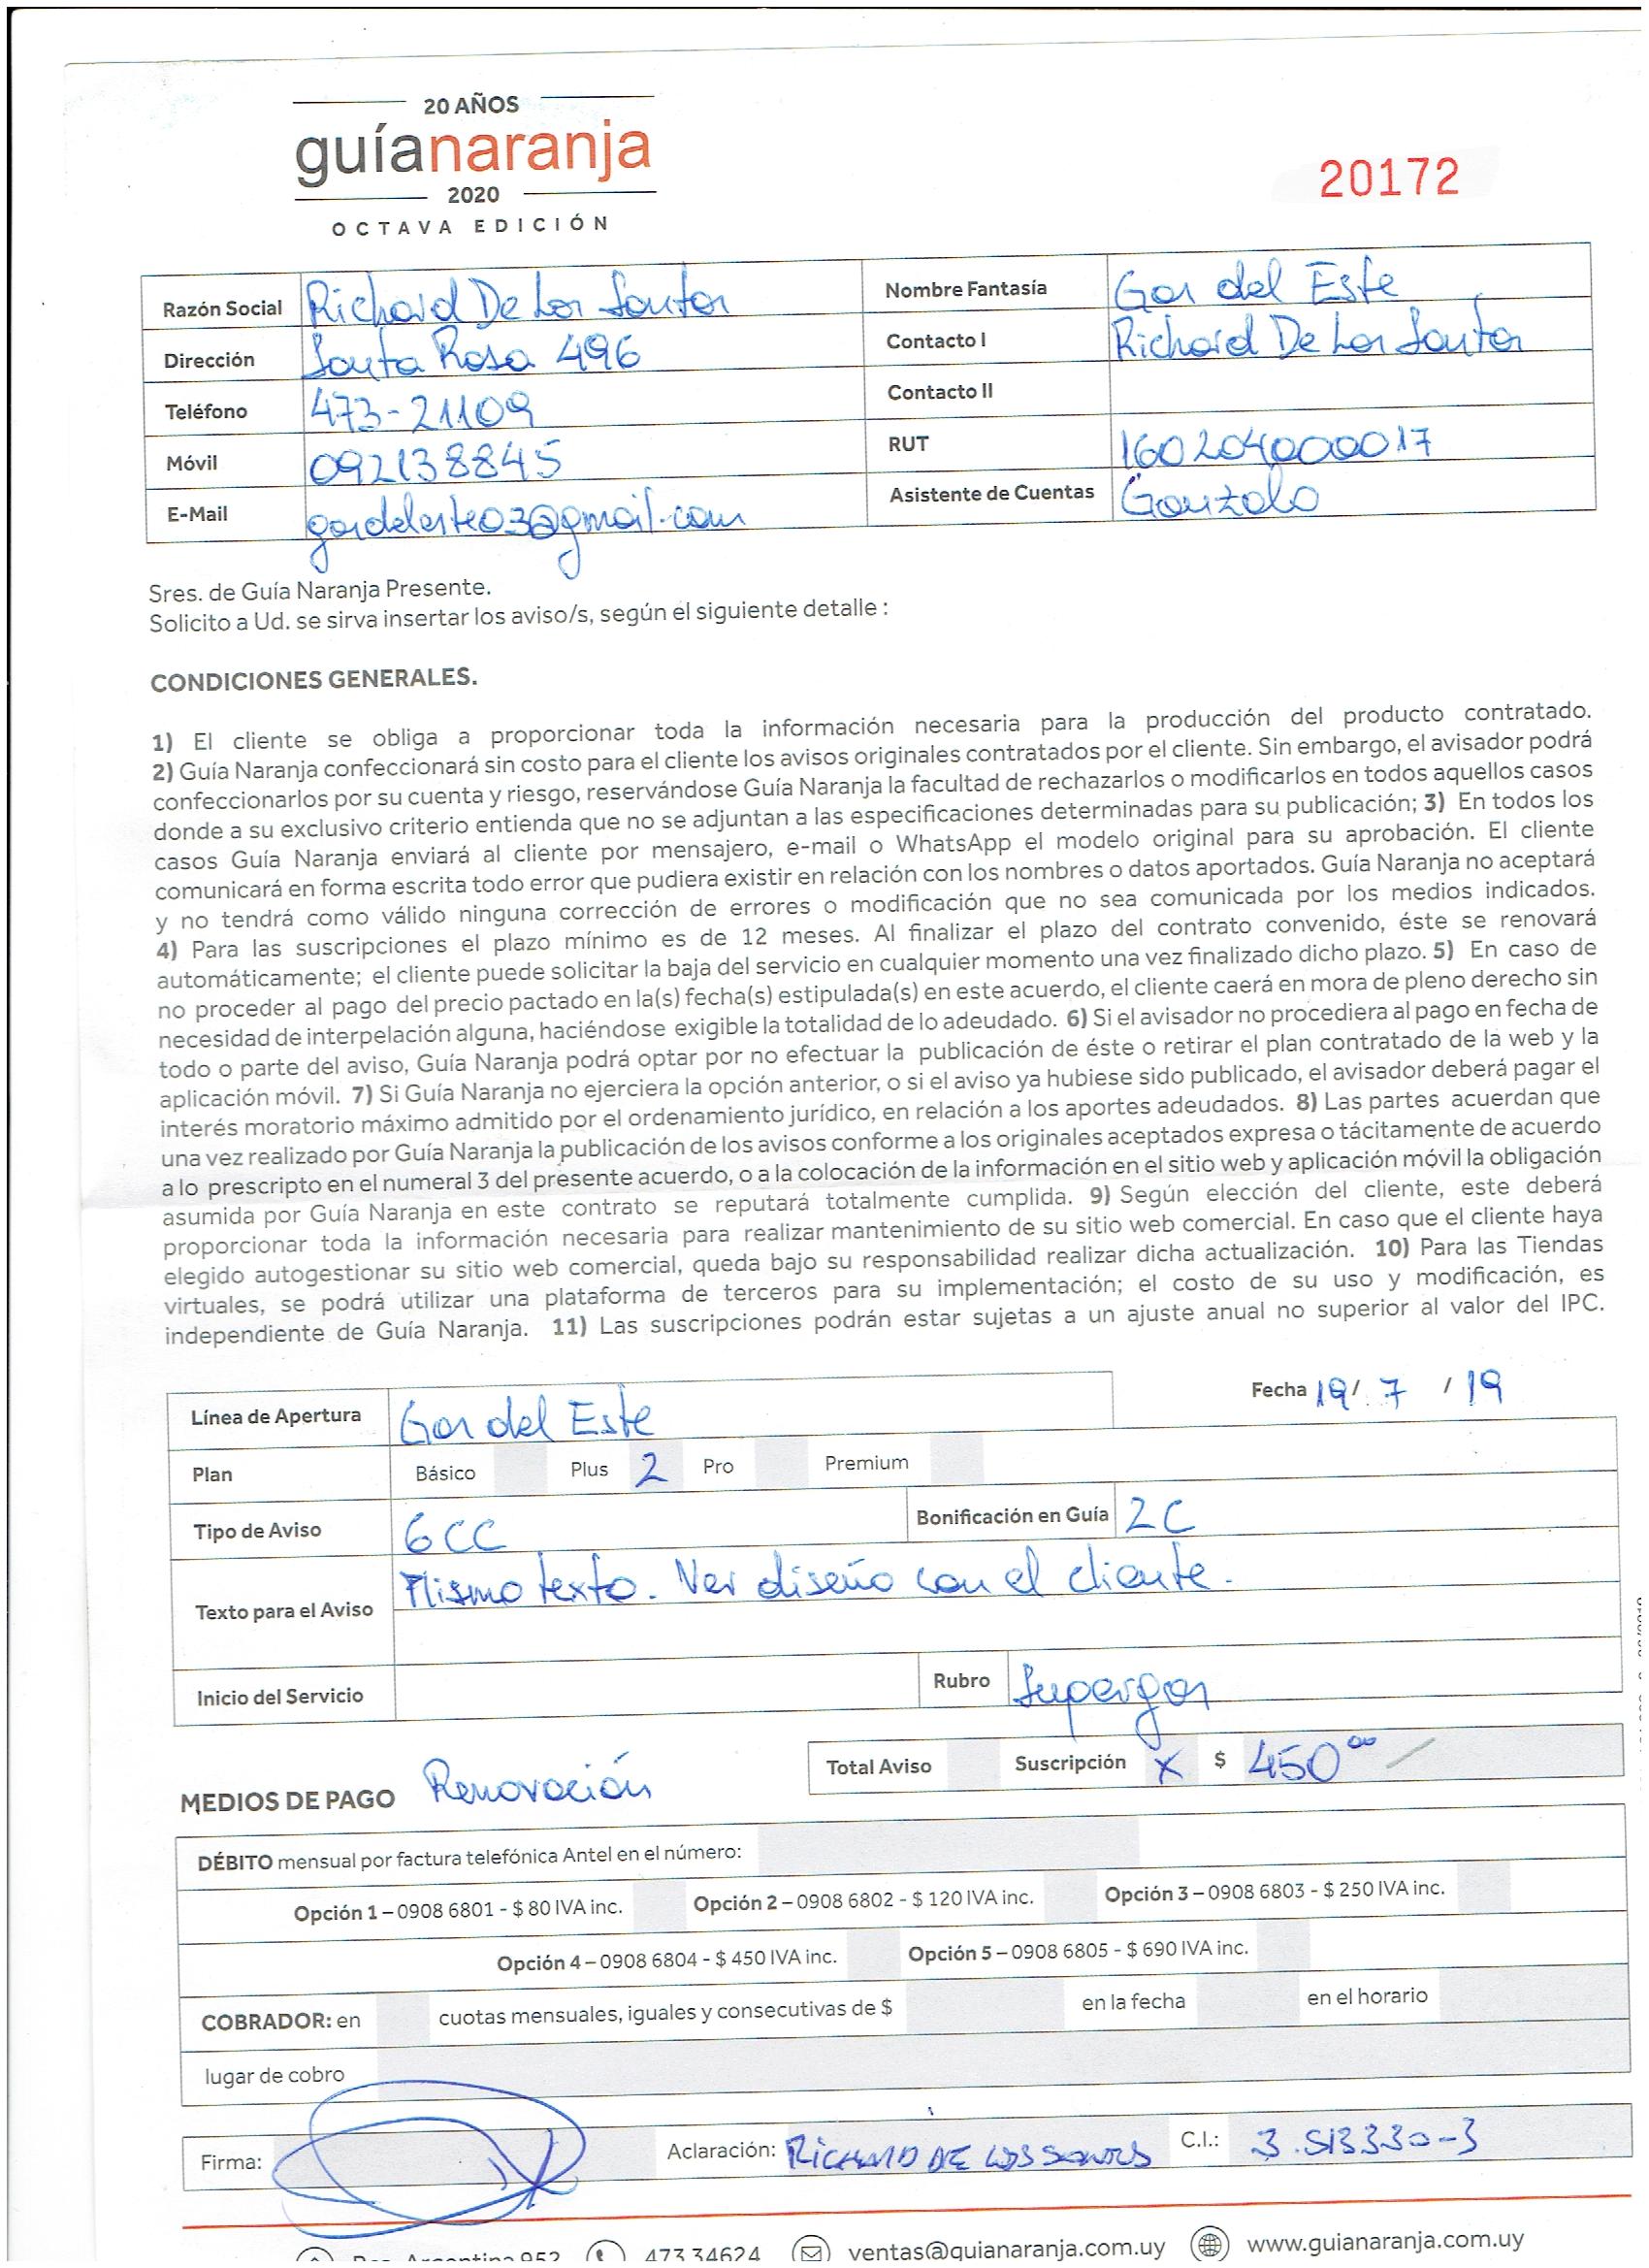 20 AÑOS
guíanaranja
2020
OCTAVA EDICIÓN
20172
Razón Social Richard De Los Santos Nombre Fantasía Gas del Este
Dirección Santa Rosa 496 Contacto I Richard De Los Santos
Teléfono 473-21109 Contacto II
Móvil 092138845 RUT 160204000017
E-Mail gasdeleste03@gmail.com Asistente de Cuentas Gonzalo
Sres. de Guía Naranja Presente.
Solicito a Ud. se sirva insertar los aviso/s, según el siguiente detalle :
CONDICIONES GENERALES.
1) El cliente se obliga a proporcionar toda la información necesaria para la producción del producto contratado.
2) Guía Naranja confeccionará sin costo para el cliente los avisos originales contratados por el cliente. Sin embargo, el avisador podrá
confeccionarlos por su cuenta y riesgo, reservándose Guía Naranja la facultad de rechazarlos o modificarlos en todos aquellos casos
donde a su exclusivo criterio entienda que no se adjuntan a las especificaciones determinadas para su publicación; 3) En todos los
casos Guía Naranja enviará al cliente por mensajero, e-mail o WhatsApp el modelo original para su aprobación. El cliente
comunicará en forma escrita todo error que pudiera existir en relación con los nombres o datos aportados. Guía Naranja no aceptará
y no tendrá como válido ninguna corrección de errores o modificación que no sea comunicada por los medios indicados.
4) Para las suscripciones el plazo mínimo es de 12 meses. Al finalizar el plazo del contrato convenido, éste se renovará
automáticamente; el cliente puede solicitar la baja del servicio en cualquier momento una vez finalizado dicho plazo. 5) En caso de
no proceder al pago del precio pactado en la(s) fecha(s) estipulada(s) en este acuerdo, el cliente caerá en mora de pleno derecho sin
necesidad de interpelación alguna, haciéndose exigible la totalidad de lo adeudado. 6) Si el avisador no procediera al pago en fecha de
todo o parte del aviso, Guía Naranja podrá optar por no efectuar la publicación de éste o retirar el plan contratado de la web y la
aplicación móvil. 7) Si Guía Naranja no ejerciera la opción anterior, o si el aviso ya hubiese sido publicado, el avisador deberá pagar el
interés moratorio máximo admitido por el ordenamiento jurídico, en relación a los aportes adeudados. 8) Las partes acuerdan que
una vez realizado por Guía Naranja la publicación de los avisos conforme a los originales aceptados expresa o tácitamente de acuerdo
a lo prescripto en el numeral 3 del presente acuerdo, o a la colocación de la información en el sitio web y aplicación móvil la obligación
asumida por Guía Naranja en este contrato se reputará totalmente cumplida. 9) Según elección del cliente, este deberá
proporcionar toda la información necesaria para realizar mantenimiento de su sitio web comercial. En caso que el cliente haya
elegido autogestionar su sitio web comercial, queda bajo su responsabilidad realizar dicha actualización. 10) Para las Tiendas
virtuales, se podrá utilizar una plataforma de terceros para su implementación; el costo de su uso y modificación, es
independiente de Guía Naranja. 11) Las suscripciones podrán estar sujetas a un ajuste anual no superior al valor del IPC.
Fecha 19/ 7 / 19
Línea de Apertura Gas del Este
Plan Básico Plus 2 Pro Premium
Tipo de Aviso 6CC Bonificación en Guía 2C
Texto para el Aviso Mismo texto. Ver diseño con el cliente.
Inicio del Servicio Rubro Supergas
Total Aviso Suscripción X $ 450 00 /
MEDIOS DE PAGO Renovación
DÉBITO mensual por factura telefónica Antel en el número:
Opción 1 – 0908 6801 - $ 80 IVA inc. Opción 2 – 0908 6802 - $ 120 IVA inc. Opción 3 – 0908 6803 - $ 250 IVA inc.
Opción 4 – 0908 6804 - $ 450 IVA inc. Opción 5 – 0908 6805 - $ 690 IVA inc.
COBRADOR: en cuotas mensuales, iguales y consecutivas de $ en la fecha en el horario
lugar de cobro
Firma: Aclaración: RICHARD DE LOS SANTOS C.I.: 3.513330-3
473 34624 ventas@guianaranja.com.uy www.guianaranja.com.uy